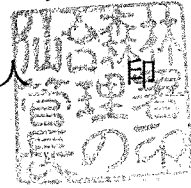 人 印
仙台森林
管理署
長の印